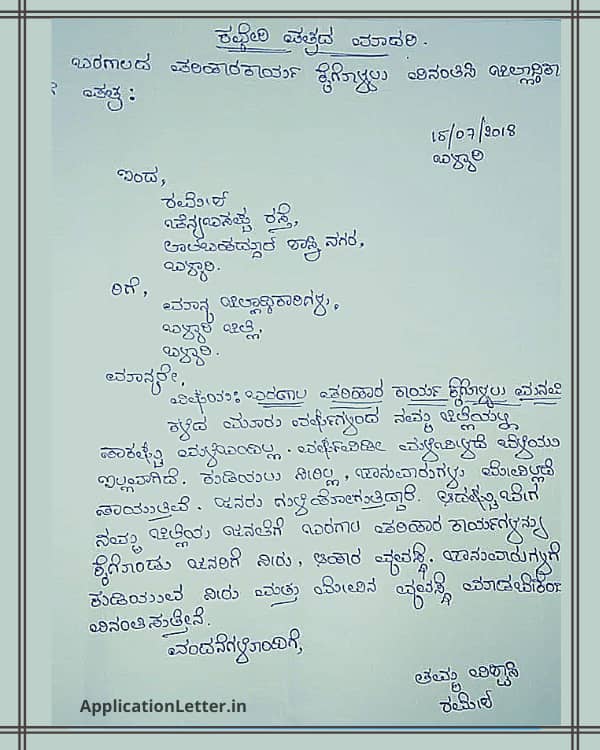 ಕಛೇರಿ ಪತ್ರದ ಮಾದರಿ.
ಬರಗಾಲದ ಪರಿಹಾರಕಾರ್ಯ ಕೈಗೊಳ್ಳಲು ವಿನಂತಿಸಿ ಜಿಲ್ಲಾಧಿಕಾ
ಪತ್ರ :
18/07/2018
ಬಳ್ಳಾರಿ
ಇಂದ,
ರಮೇಶ
ಚೆನ್ನಬಸಪ್ಪ ರಸ್ತೆ,
ಲಾಲಬಹದ್ದೂರ ಶಾಸ್ತ್ರಿ ನಗರ,
ಬಳ್ಳಾರಿ.
ರಿಗೆ,
ಮಾನ್ಯ ಜಿಲ್ಲಾಧಿಕಾರಿಗಳು,
ಬಳ್ಳಾರಿ ಜಿಲ್ಲೆ,
ಬಳ್ಳಾರಿ.
ಮಾನ್ಯರೇ,
ವಿಷಯ: ಬರಗಾಲ ಪರಿಹಾರ ಕಾರ್ಯ ಕೈಗೊಳ್ಳಲು ಮನವಿ
ಕಳೆದ ಮೂರು ವರ್ಷಗಳಿಂದ ನಮ್ಮ ಜಿಲ್ಲೆಯಲ್ಲಿ
ಸಾಕಷ್ಟು ಮಳೆಬಂದಿಲ್ಲ. ವರ್ಷವಿಡೀ ಮಳೆಯಿಲ್ಲದೆ ಬೆಳೆಯೂ
ಇಲ್ಲವಾಗಿದೆ. ಕುಡಿಯಲು ನೀರಿಲ್ಲ, ಜಾನುವಾರುಗಳು ಮೇವಿಲ್ಲದೆ
ಸಾಯುತ್ತಿವೆ. ಜನರು ಗುಳೆಹೋಗುತ್ತಿದ್ದಾರೆ. ಆದಷ್ಟು ಬೇಗ
ನಮ್ಮ ಜಿಲ್ಲೆಯ ಜನತೆಗೆ ಬರಗಾಲ ಪರಿಹಾರ ಕಾರ್ಯಗಳನ್ನು
ಕೈಗೊಂಡು ಜನರಿಗೆ ನೀರು, ಆಹಾರ ವ್ಯವಸ್ಥೆ, ಜಾನುವಾರುಗಳಿಗೆ
ಕುಡಿಯುವ ನೀರು ಮತ್ತು ಮೇವಿನ ವ್ಯವಸ್ಥೆ ಮಾಡಬೇಕೆಂ
ವಿನಂತಿಸುತ್ತೇನೆ.
ವಂದನೆಗಳೊಂದಿಗೆ,
ತಮ್ಮ ವಿಶ್ವಾಸಿ
ರಮೇಶ
ApplicationLetter.in